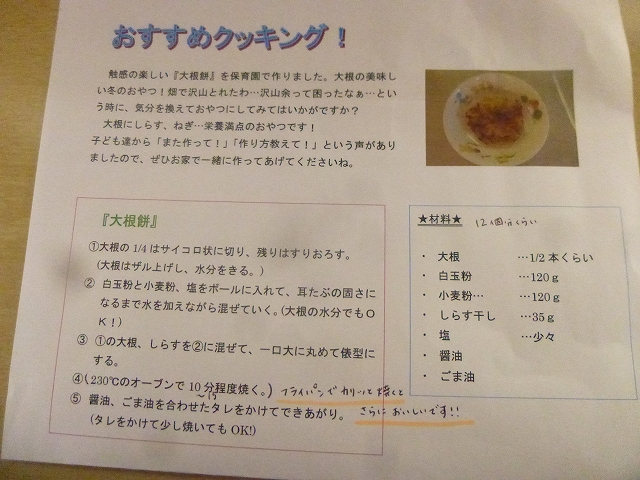 おすすめクッキング！
触感の楽しい『大根餅』を保育園で作りました。大根の美味し
い冬のおやつ！畑で沢山とれたわ…沢山余って困ったなぁ…とい
う時に、気分を換えておやつにしてみてはいかがですか？
大根にしらす、ねぎ…栄養満点のおやつです！
子ども達から「また作って！」「作り方教えて！」という声があり
ましたので、ぜひお家で一緒に作ってあげてくださいね。
『大根餅』
①大根の 1/4 はサイコロ状に切り、残りはすりおろす。
(大根はザル上げし、水分をきる。)
② 白玉粉と小麦粉、塩をボールに入れて、耳たぶの固さに
なるまで水を加えながら混ぜていく。(大根の水分でもO
K！)
③ ①の大根、しらすを②に混ぜて、一口大に丸めて俵型に
する。
④(230℃のオーブンで 10 分程度焼く。) フライパンでカリッと焼くと
～15
⑤ 醤油、ごま油を合わせたタレをかけてできあがり。 さらにおいしいです!!
(タレをかけて少し焼いても OK!)
★材料★ 12個分くらい
・ 大根 …1/2 本くらい
・ 白玉粉 …120ｇ
・ 小麦粉… …120ｇ
・ しらす干し …35ｇ
・ 塩 …少々
・ 醤油
・ ごま油